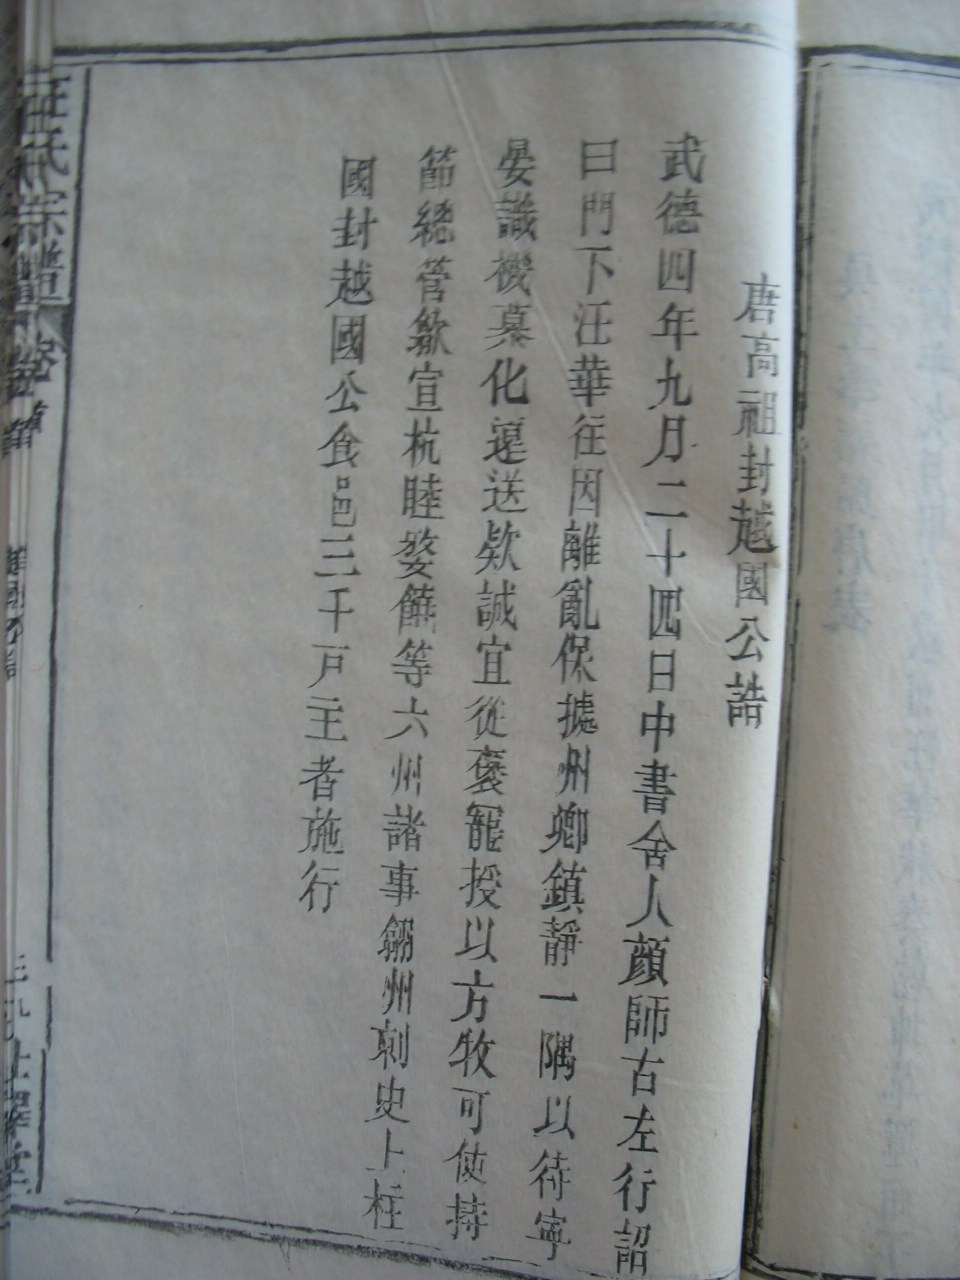 唐高祖封越國公誥
武德四年九月二十四日中書舍人顔師古左行詔
曰門下汪華往因離亂保據州鄉鎮靜一隅以待寧
晏識機慕化遠送欵誠宜從褒寵授以方牧可使持
節總管歙宣杭睦婺饒等六州諸事歙州刺史上柱
國封越國公食邑三千戸主者施行
汪氏宗譜